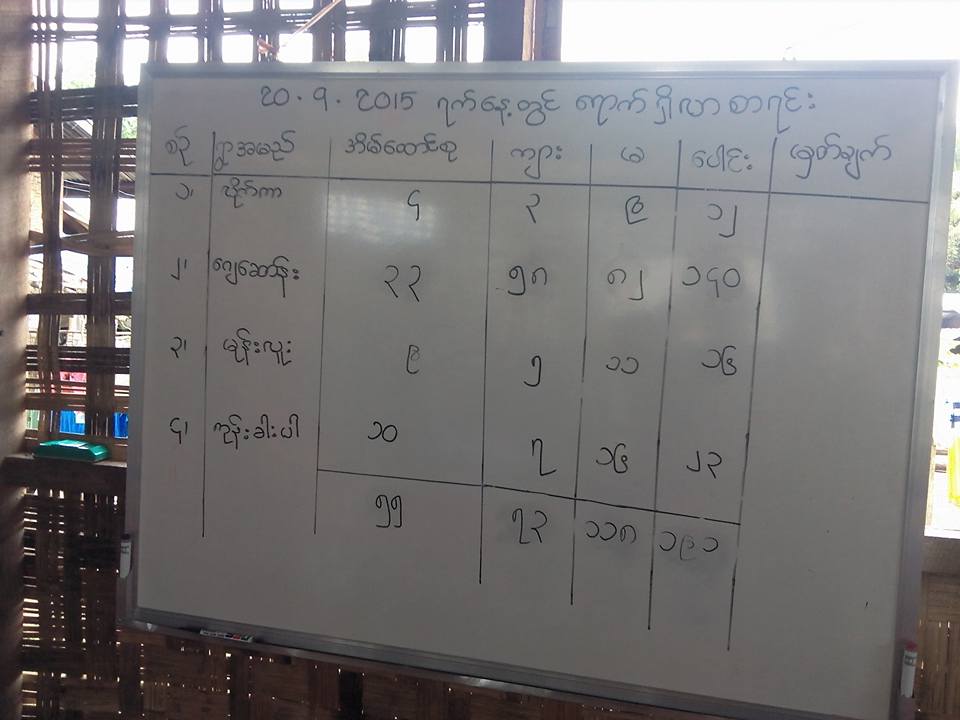 20.9.2015 ရက်နေ့တွင် ရောက်ရှိလာစာရင်း
စဉ် ရွာအမည် အိမ်ထောင်စု ကျား မ ပေါင်း မှတ်ချက်
၁၊ ပိုက်ကာ ၄ ၃ ၉ ၁၂
၂၊ ၃၃ ၅၈ ၈၂ ၁၄၀
၃၊ မျန်းလူး ၉ ၅ ၁၁ ၁၆
၄၊ ကုန်းခါးပါ ၁၀ ၇ ၁၆ ၂၃
၅၅ ၇၃ ၁၁၈ ၁၉၁